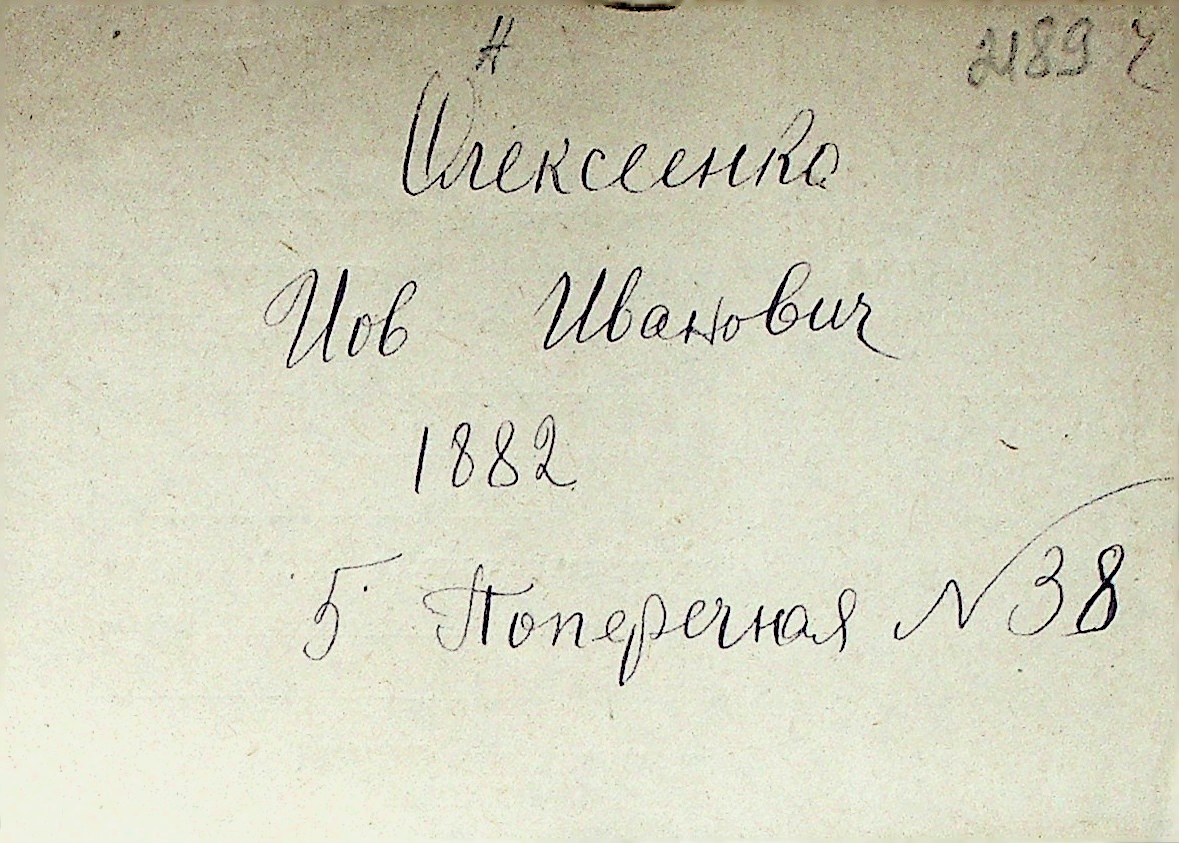 2189 ч
А
Олексеенко
Иов Иванович
1882
5 Поперечная № 38